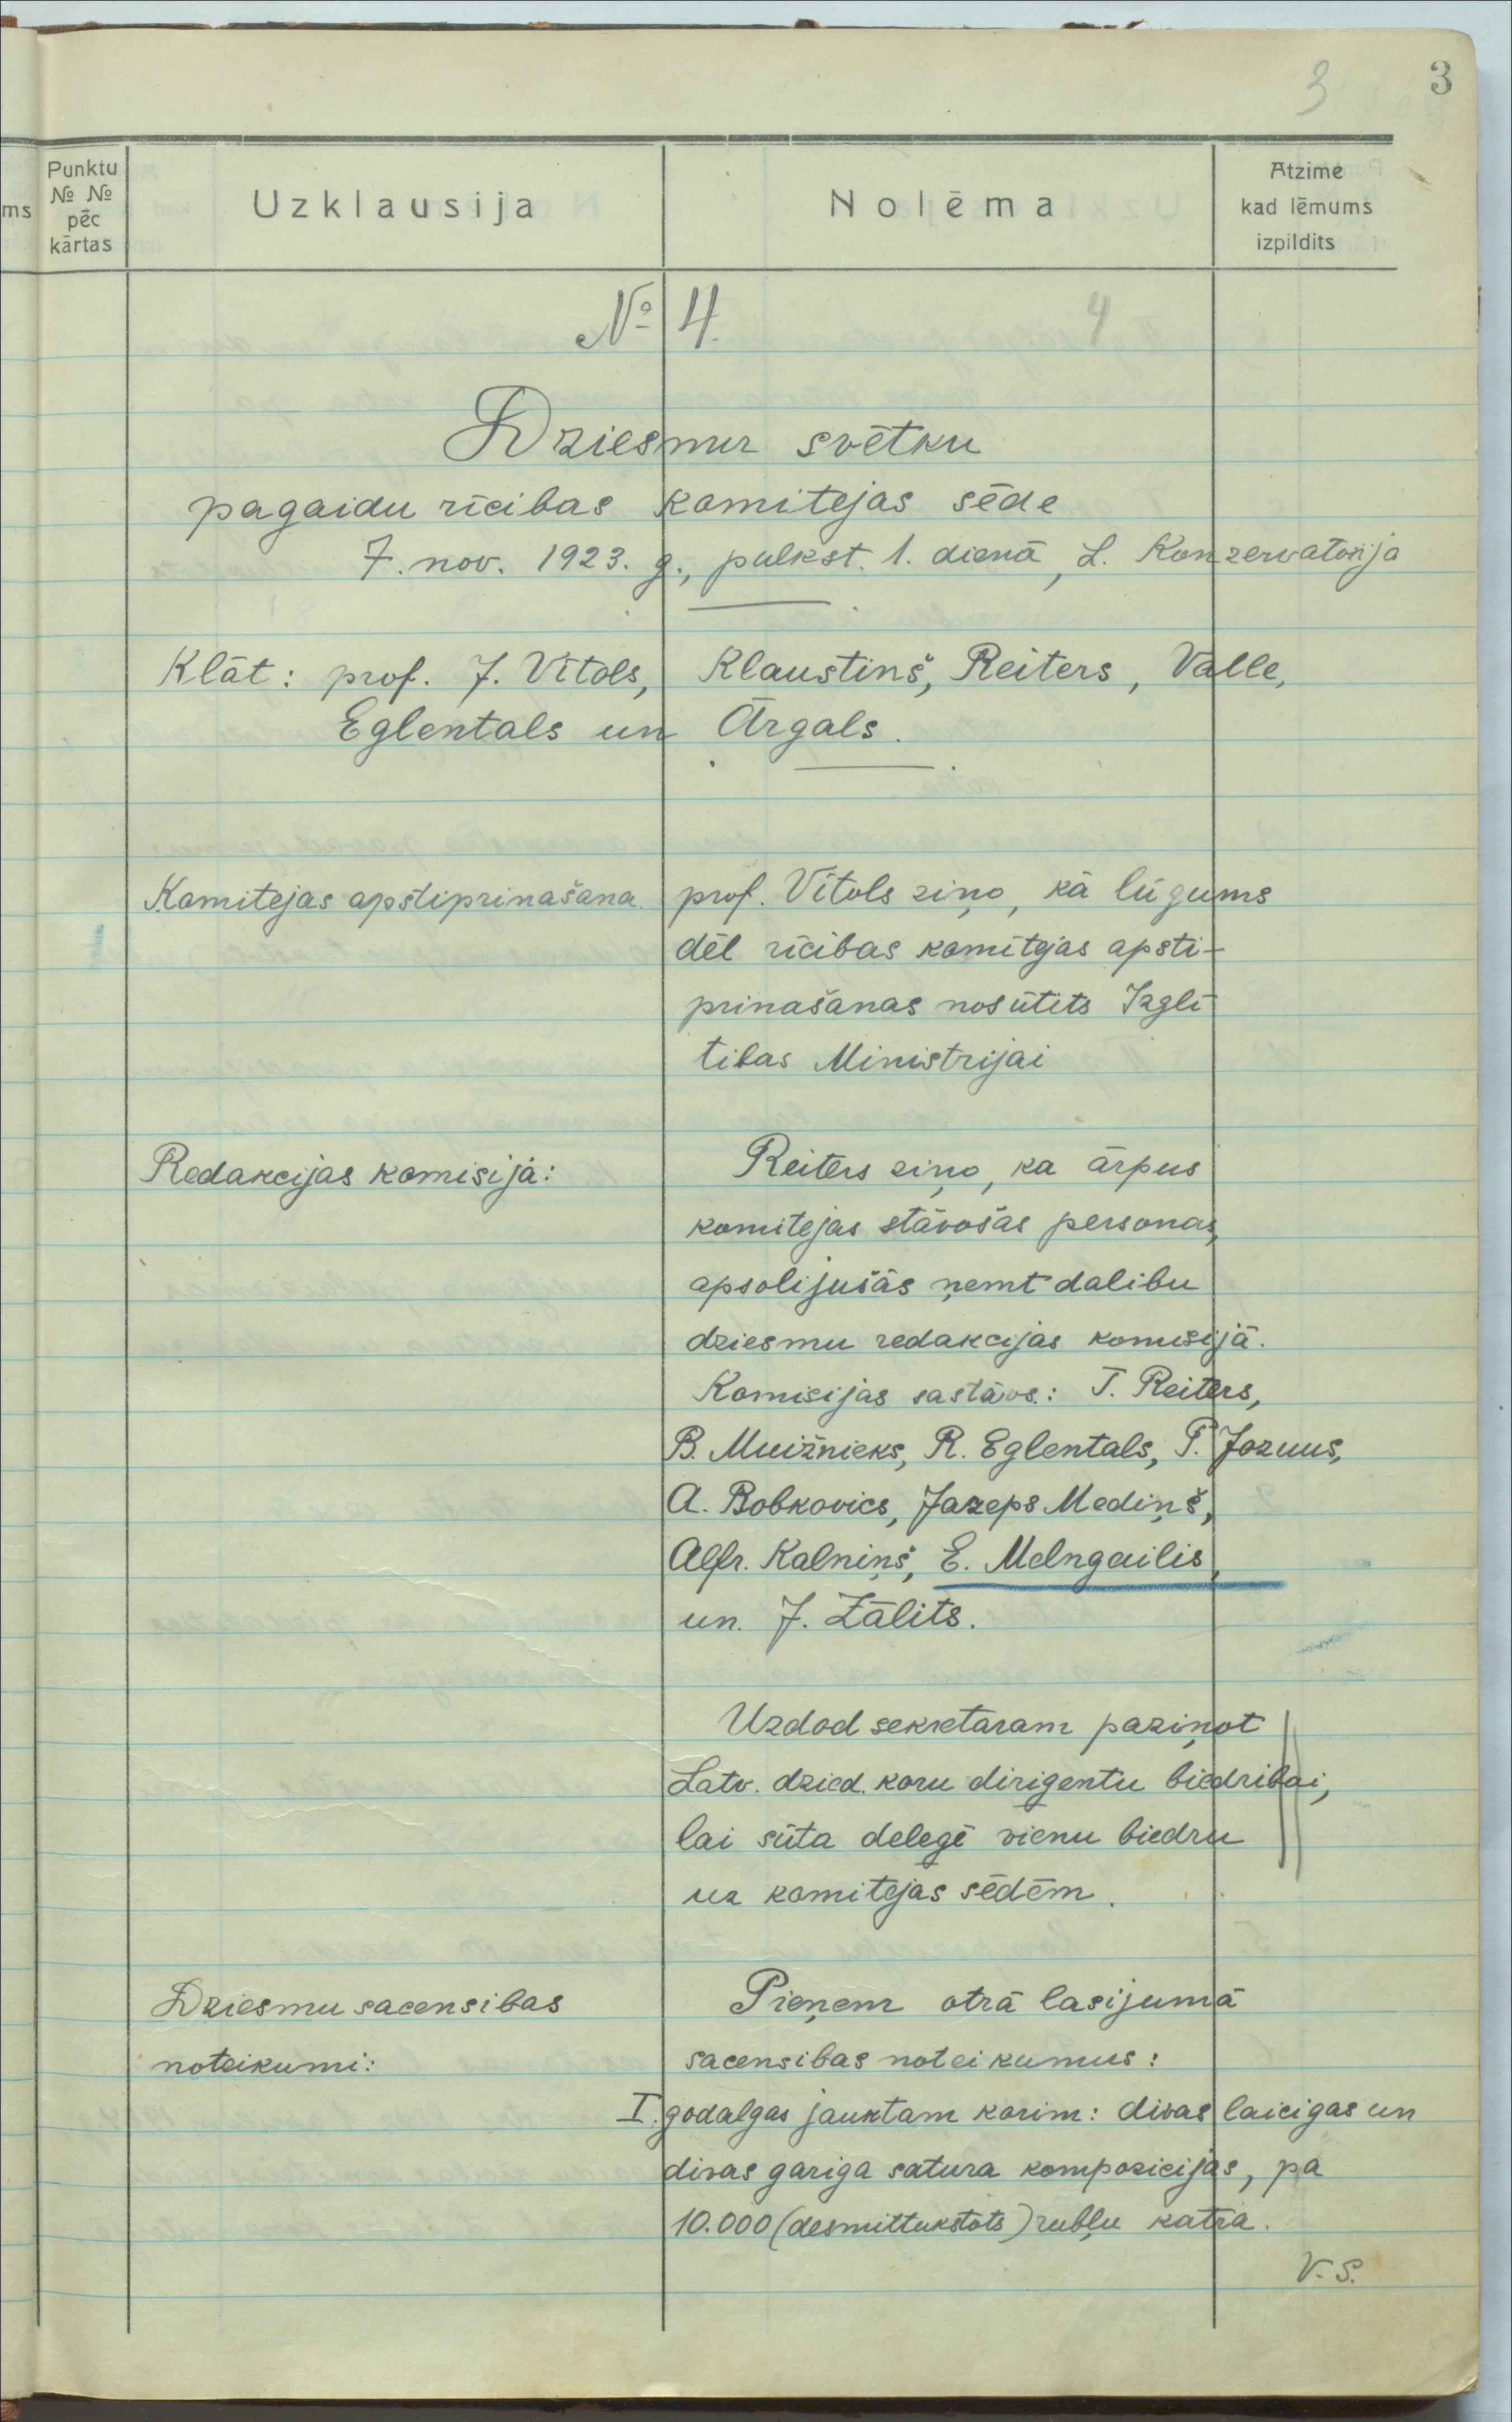 3 3
ms
Punktu
№ №
pēc
kārtas
Uzklausija
Nolēma
Atzime
kad lēmums
izpildits
№ 4. 4
Dziesmu svētku
pagaidu rīcibas komitejas sēde
7. nov. 1923. g., pulkst. 1. dienā, L. Konzervatorija
Klāt: prof. J. Vītols, Klaustinš, Reiters, Valle,
Eglentals un Ārgals.
Komitejas apstiprinašana.
prof. Vītols ziņo, kā lūgums
dēl rīcibas komitejas apsti-
prinašanas nosūtits Izglī
tibas Ministrijai
Redakcijas komisijā:
Reiters ziņo, ka ārpus
komitejas stāvošās personas,
apsolijušās ņemt dalibu
dziesmu redakcijas komisijā.
Komisijas sastāvs: T. Reiters,
B. Muižnieks, R. Eglentals, P. Jozuus,
A. Bobkovics, Jazeps Mediņš,
Alfr. Kalniņš, E. Melngailis,
un. J. Zālits.
Uzdod sekretaram paziņot
Latv. dzied. koru dirigentu biedribai,
lai sūta delegē vienu biedru
uz komitejas sēdēm.
Dziesmu sacensibas
noteikumi:
Pieņem otrā lasijumā
sacensibas noteikumus:
I. godalgas jauktam korim: divas laicigas un
divas gariga satura kompozicijas, pa
10.000 (desmittukstots) rubļu katra.
V. S.